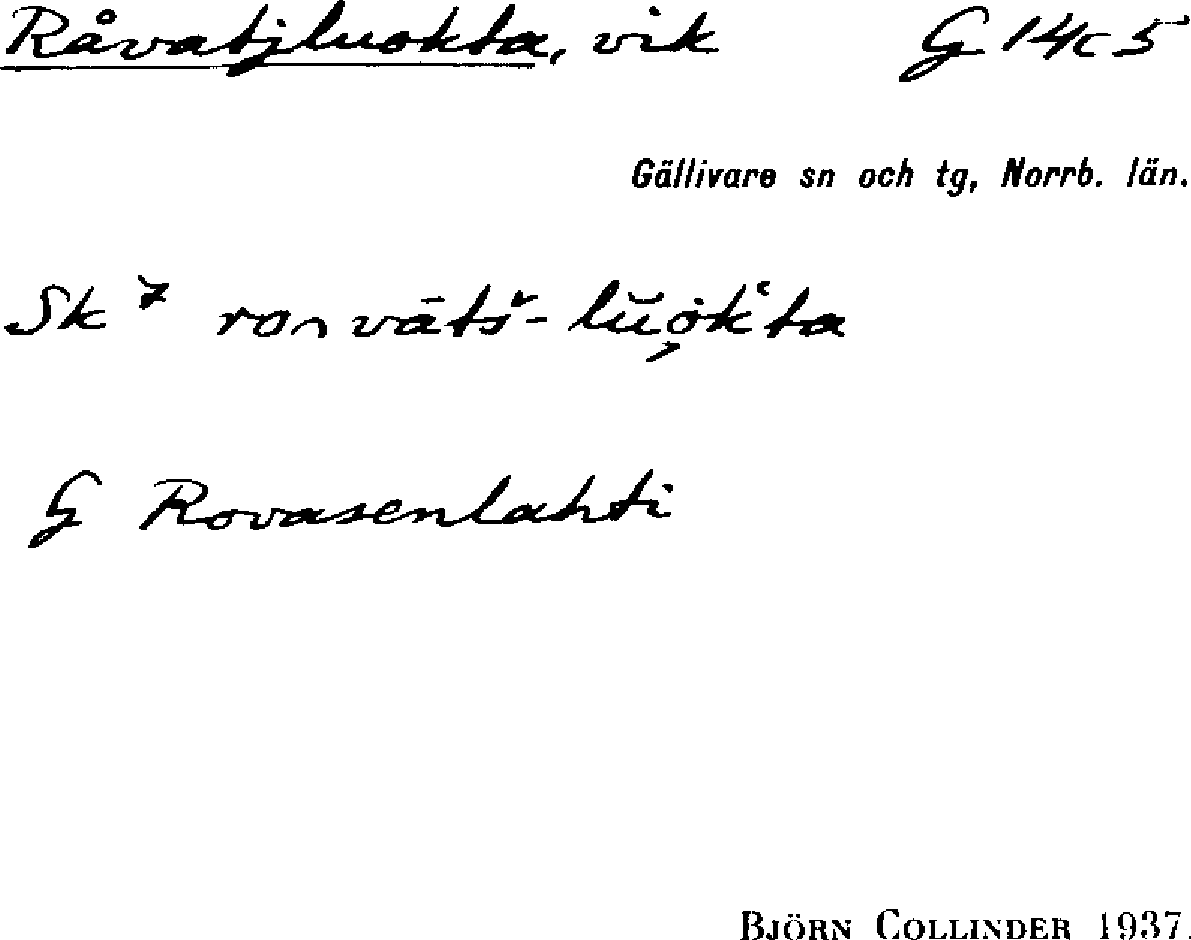 Råvatjluokta, vik G 14c 5
Gällivare sn och tg, Norrb. län.
Sk
G Rovasenlahti
BJÖRN COLLINDER 1937.